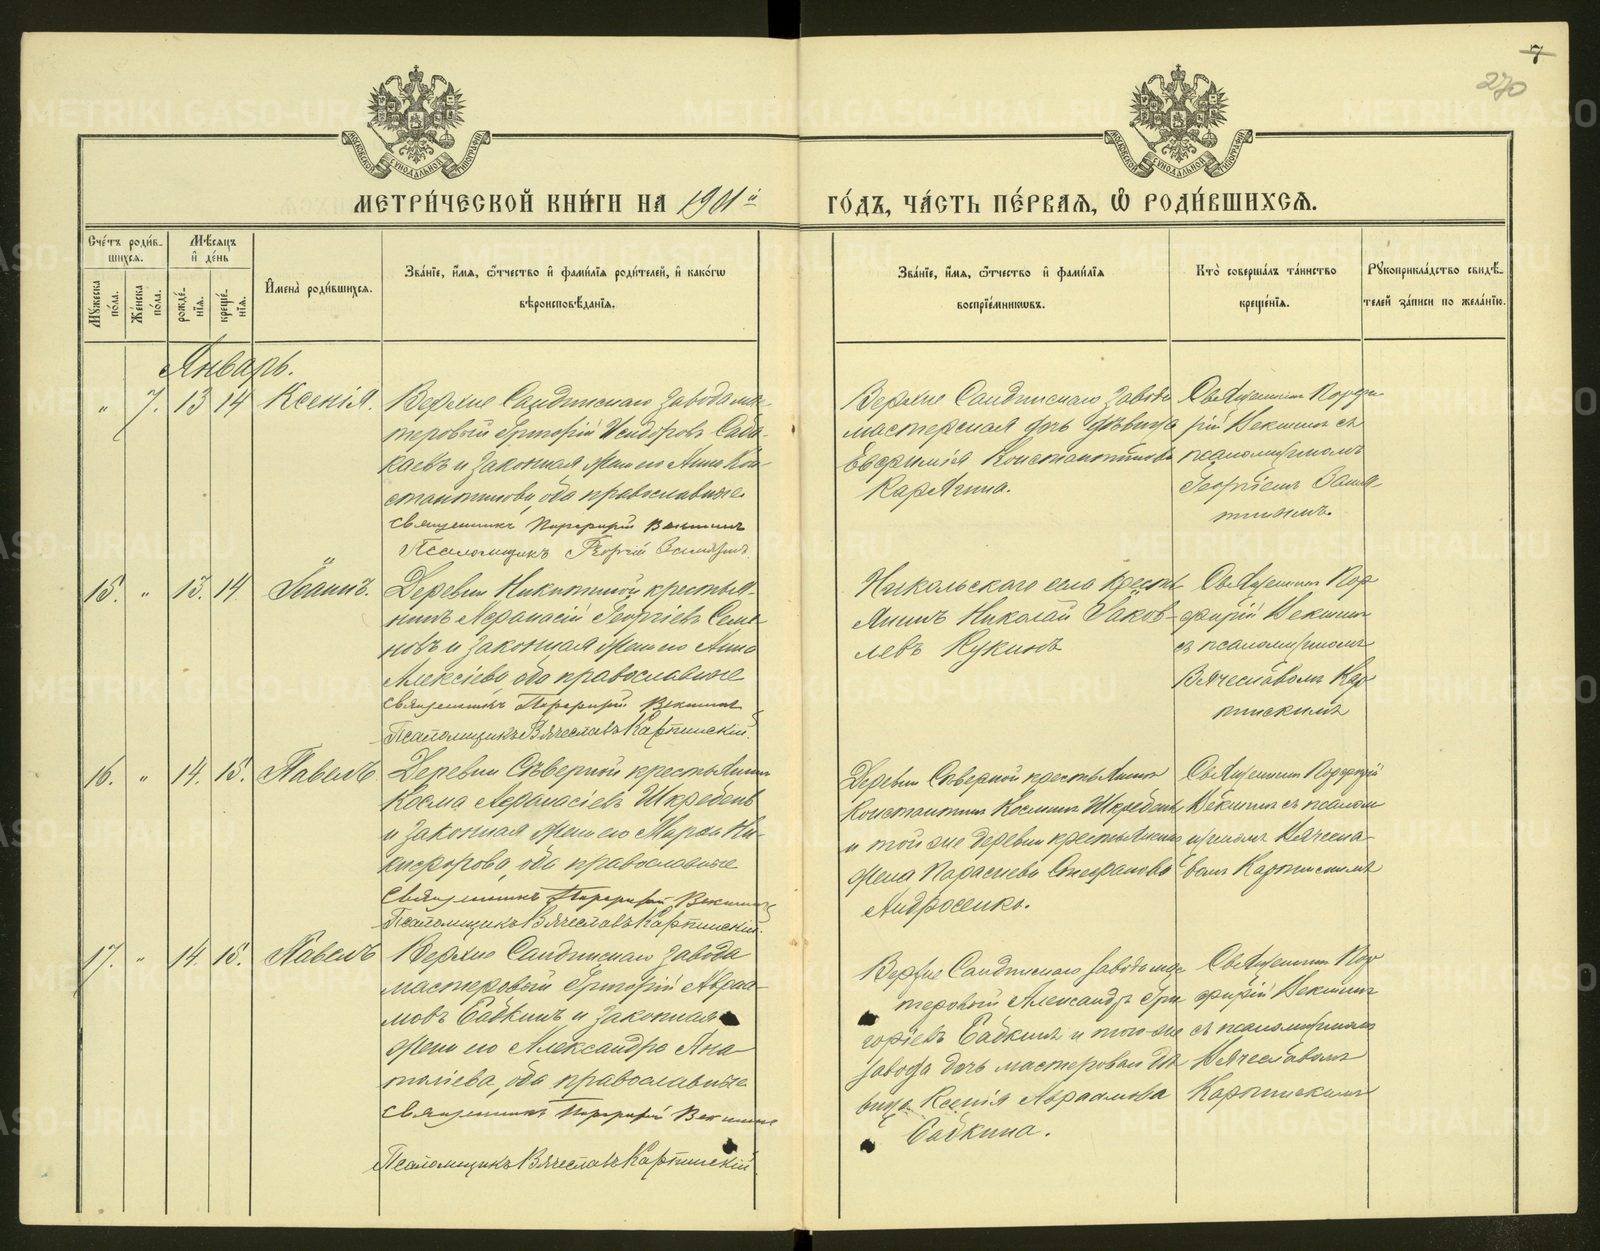 7
270
МЕТРИ́ЧЕСКОЙ КНИ́ГИ НА 1901й
ГО́ДЪ, ЧА́СТЬ ПЕ́РВАЯ, Ѽ РОДИ́ВШИХСЯ.
Сче́тъ роди́в-
шихся.
Мꙋ́жеска по́ла.
Же́нска по́ла.
Мѣ́сяцъ
и де́нь
рожде́-
нїя.
креще́-
нїя.
И҆мена̀ роди́вшихся.
Зва́нїе, и҆́мя, ѻ҆́тчество и҆ фами́лїѧ роди́телей, и҆ како́гѡ
вѣроисповѣ́данїя.
Зва́нїе, и҆́мя, ѻ҆́тчество и҆ фами́лїѧ
воспрїе́мникѡвъ.
Кто̀ соверша́лъ та́инство
креще́нїя.
Рꙋкоприкла́дство свидѣ́-
телей за́писи по жела́нїю.
Январь.
" 7. 13 14 Ксенія.
Верхне Салдинскаго завода мас-
теровый Григорій Исидоровъ
и законная жена его Анна Кон-
стантинова, оба православные
Священникъ Порфирій Векшинъ
Псаломщикъ Георгій
Верхне Салдинскаго завода
мастерская дочь дѣвица
Евфимія Константинова
Карягина.
Священникъ Порфи-
рій Векшинъ съ
псаломщикомъ
Георгіемъ
15. " 13. 14 Іоаннъ.
Деревни Никитиной крестья-
нинъ Афанасій Георгіевъ Семе-
новъ и законная жена его Анна
Алексіева, оба православные
Священникъ Порфирій Векшинъ
Псаломщикъ Вячеславъ Карпинскій.
села крестья-
нинъ Николай Іаков-
левъ Кукинъ
Священникъ Пор-
фирій Векшинъ
съ псаломщикомъ
Вячеславомъ Кар-
пинскимъ
16. " 14. 15. Павелъ
Деревни Сѣверной крестьянинъ
Косма Афанасіевъ Шкребень
и законная жена его Марѳа Ни-
кифорова, оба православные
Священникъ Порфирій Векшинъ
Псаломщикъ Вячеславъ Карпинскій.
Деревни Сѣверной крестьянинъ
Константинъ Косминъ Шкребень
и той же деревни крестьянская
жена Параскева Стефанова
Андросенко.
Священникъ Порфирій
Векшинъ съ псалом-
щикомъ Вячесла-
вомъ Карпинскимъ
17. " 14. 15. Павелъ
Верхне Салдинскаго завода
мастеровый Григорій Авраа-
мовъ Бабкинъ и законная
жена его Александра Ана-
толіева, оба православные
Священникъ Порфирій Векшинъ
Псаломщикъ Вячеславъ Карпинскій.
Верхне Салдинскаго завода мас-
теровый Александръ Гри-
горіевъ Бабкинъ и того же
завода дочь мастероваго дѣ-
вица Ксенія Авраамова
Бабкина.
Священникъ Пор-
фирій Векшинъ
съ псаломщикомъ
Вячеславомъ
Карпинскимъ